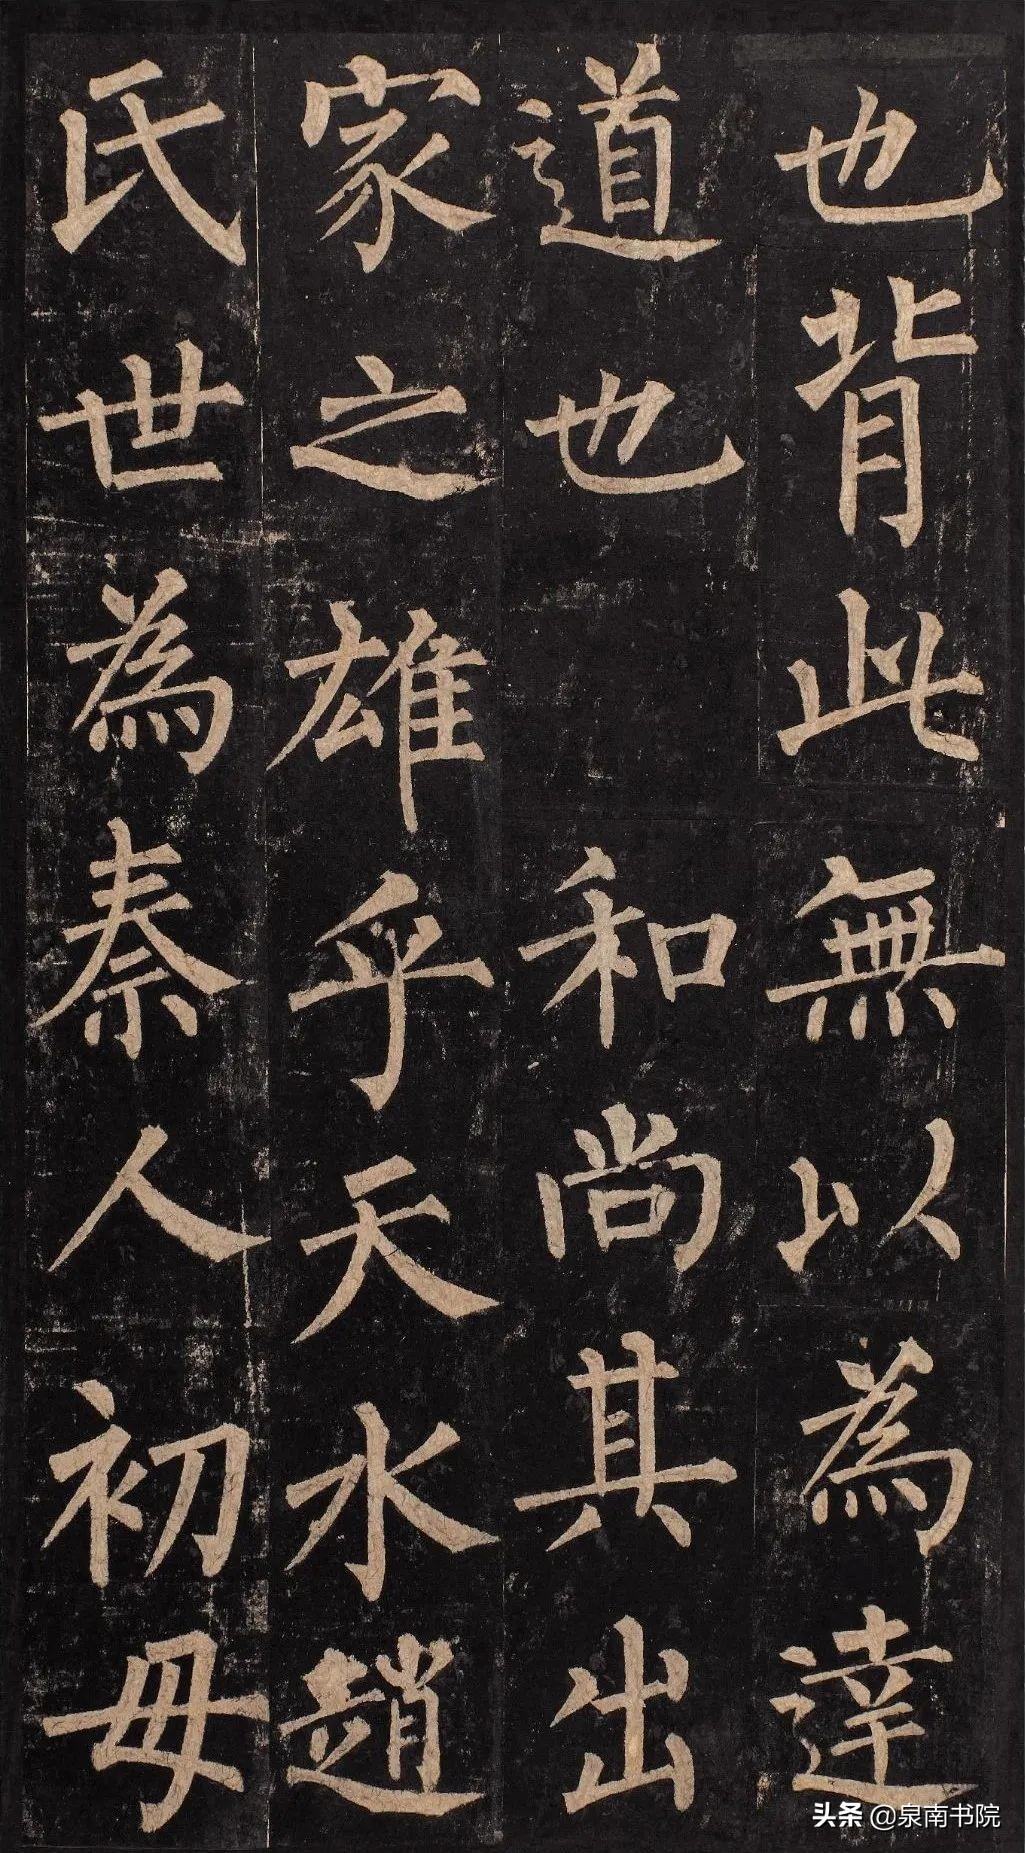 也背此無以為達
道也 和尚其出
家之雄乎天水趙
氏世為秦人初母
头条 @泉南书院